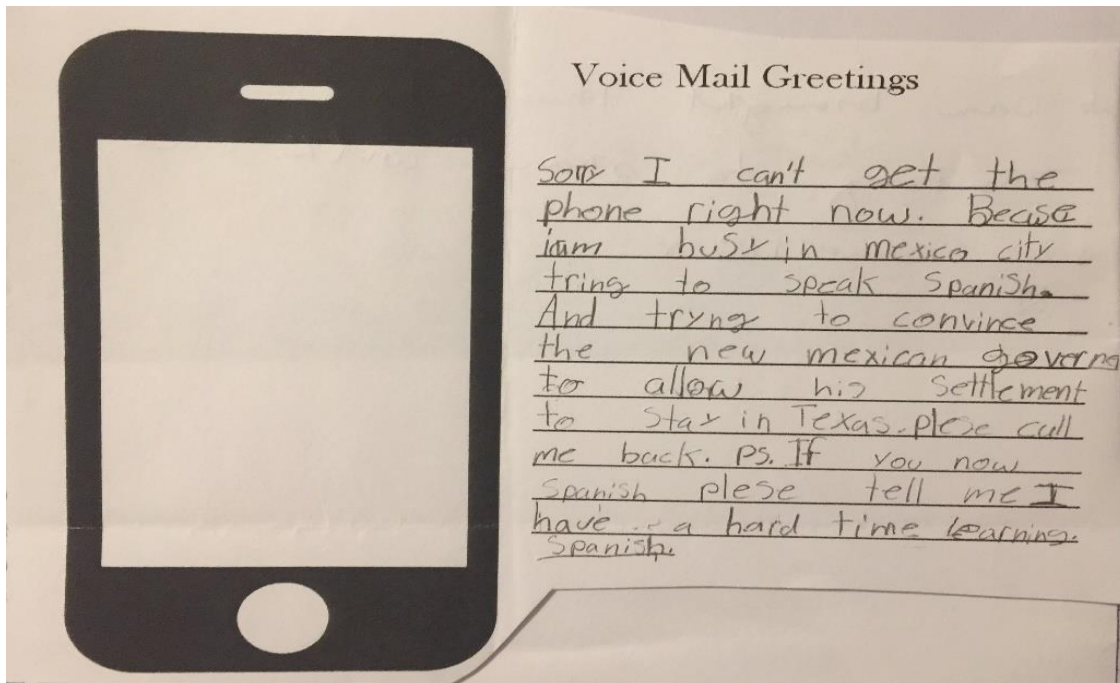 Voice Mail Greetings
Sorry I can't get the
phone right now. Becase
iam busy in mexico city
tring to speak Spanish.
And tryng to convince
the new mexican governe
to allow his settlement
to stay in Texas. plese call
me back. ps. If you now
Spanish plese tell me I
have a hard time learning.
Spanish.